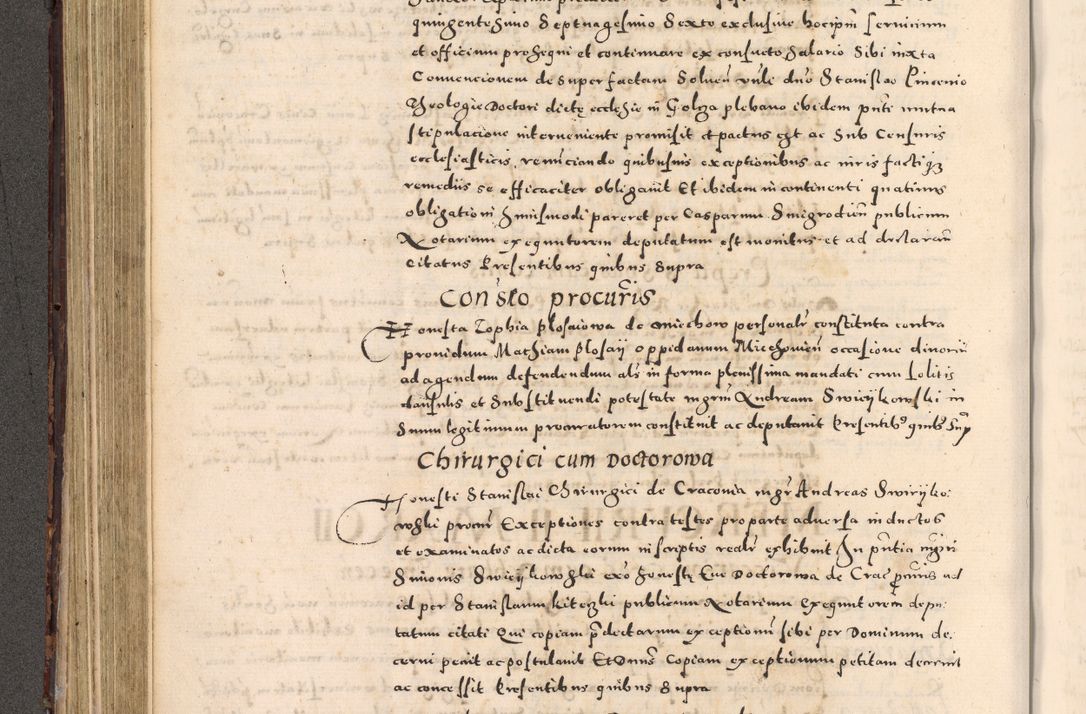 quingentesimo Septuagesimo Sexto exclusive hocipm servicium
et officium prosequi et continuare ex consueto Salario Sibi iuxta
Convencionem desuper factam Solven vnle dno Stanislao Pincenio
Theologie Doctori dictę ecclesie in Golcza plebano ibidem pnti mutua
stipulacione interveniente promisit et pactus est ac Sub Censuris
ecclesiasticis, renunciando quibusuis exceptionibus ac iuris factiqz
remediis se efficaciter obligauit Et ibidem in continenti quatinus
obligationi huiusmodi pareret per Casparum Smigrodien publicum
Notarium exequutorem deputatum est monitus et ad declaran
Citatus Presentibus quibus Supra
Constō procuris
Honesta Zophia Plosaiowa de Miechow personalr constituta contra
providum Mathiam Plosaij oppidanum Miechovien occasione divorij
ad agendum defendendum als in forma plenissima mandati cum solitis
clausulis et Substituendi potestate mgrm Andream Swieijkowski in
Suum legitimum procuratorem constituit ac deputauit Presentib9 quib9 Supr
Chirurgici cum Doctorowa
Honesti Stanislai Chirurgici de Cracouia mgr Andreas Swieijko:
wski procur Exceptiones contra testes pro parte adversa inductos
et examinatos ac dicta eorum in scriptis realr exhibuit In pntia mgri
Simonis Swieijkowski exo honestę Eue Doctorowa de Crac pcuris ad
id per Stanislaum kiteczki publicum Notarium Exequutorem depu:
tatum citati Qui copiam pdictarum exceptionum sibi per Dominum de:
cerni peciit ac postulauit Et Dnns Copiam exceptionum petitam decreuit
ac concessit Presentibus quibus Supra